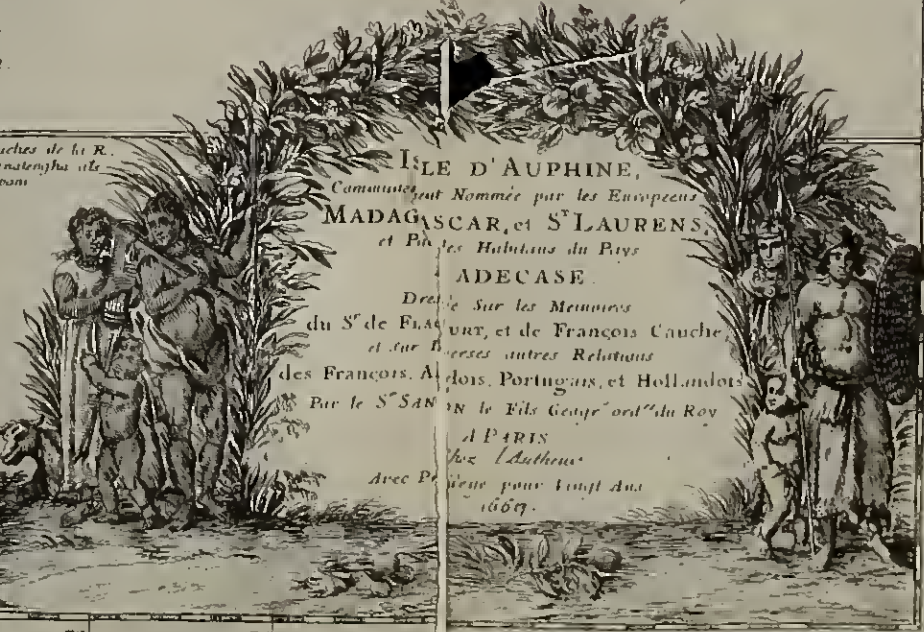 uches de la R.
ISLE D'AUPHINE,
Communément Nommée par les Europeens
MADAGASCAR, et St LAURENS,
et Par les Habitans du Pays
MADECASE
Dressée Sur les Memoires
du Sr de FLACOURT, et de François Cauche,
et sur Diverses autres Relations
des François, Portugais, et Hollandois
Par le Sr SANSON le Fils Geogre ordre du Roy
A PARIS
Chez l'Autheur
Avec Privilege pour Vingt Ans